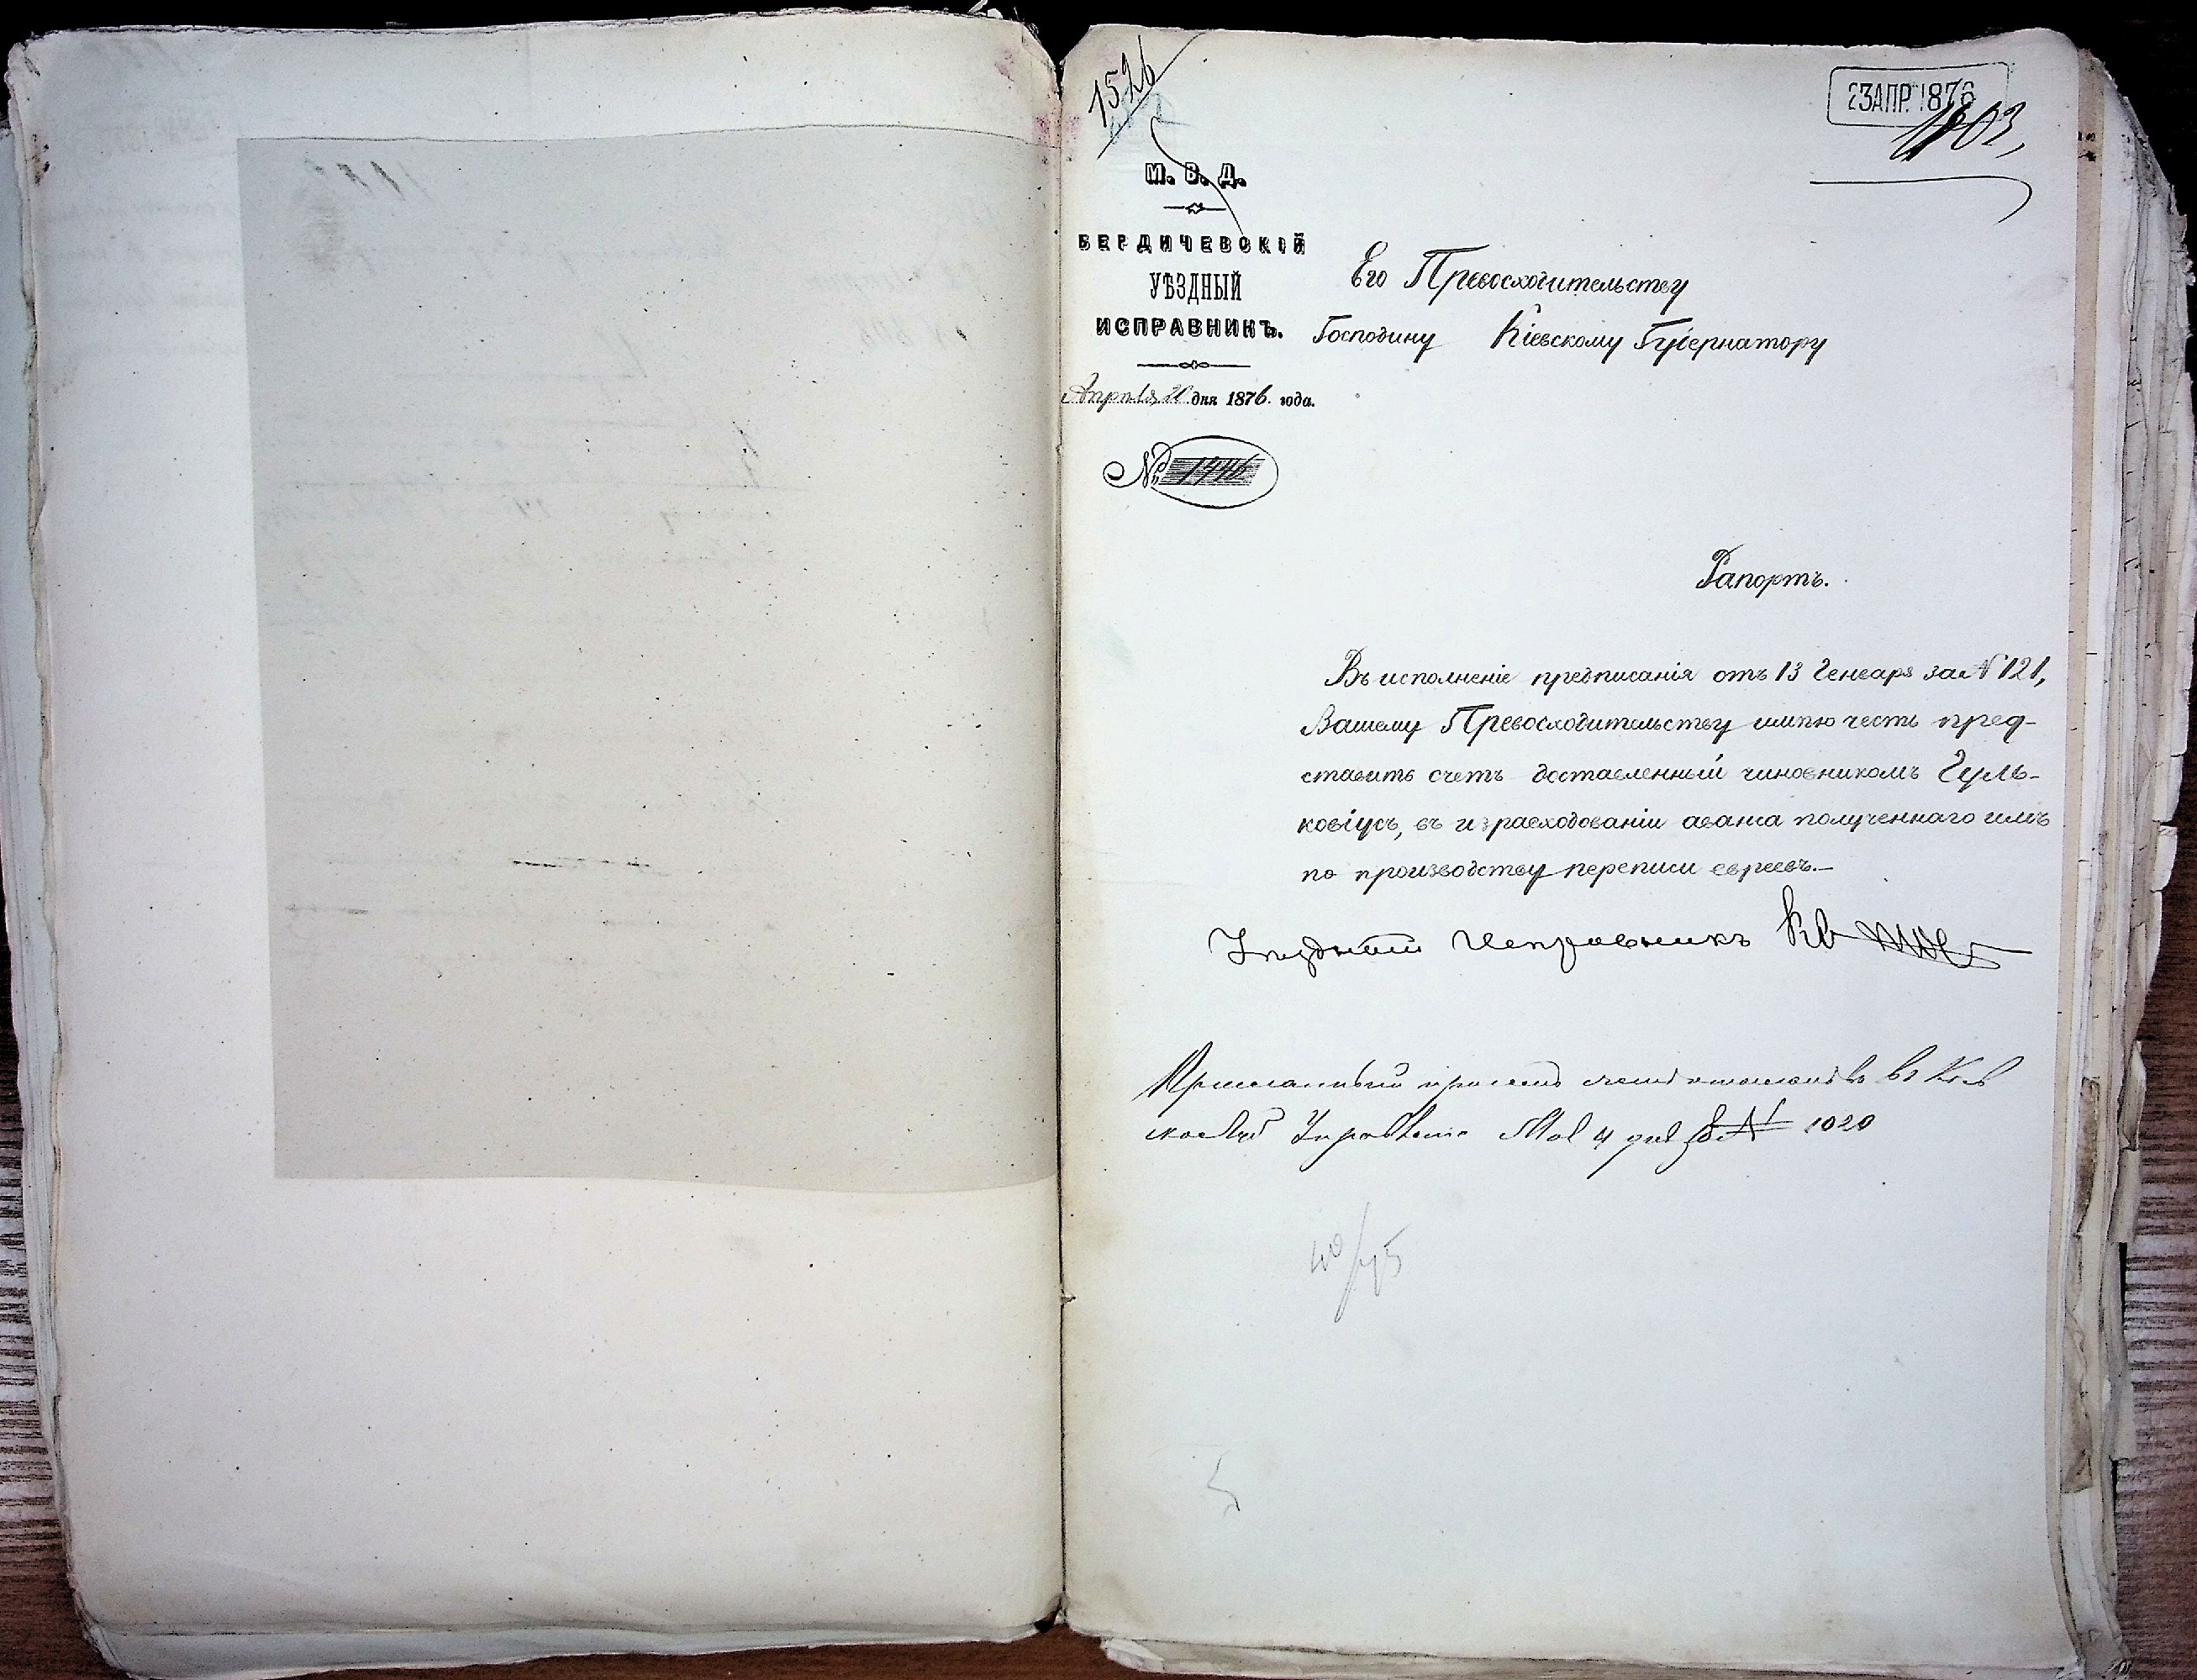 1526
23 АПР. 1876
1803
М. В. Д.
БЕРДИЧЕВСКІЙ
УѢЗДНЫЙ
ИСПРАВНИКЪ.
Апрѣля дня 1876 года.
№ 1446
Его Превосходительству
Господину Кіевскому Губернатору
Рапортъ.
Въ исполненіе предписанія отъ 13 Генваря за № 121,
Вашему Превосходительству имѣю честь пред-
ставить счетъ доставленный чиновникомъ Гуль-
ковіусъ, въ израсходованіи аванса полученнаго имъ
по производству переписи евреевъ.—
Уѣздный Исправникъ
въ
Управленіе Мая 4 дня за № 1020